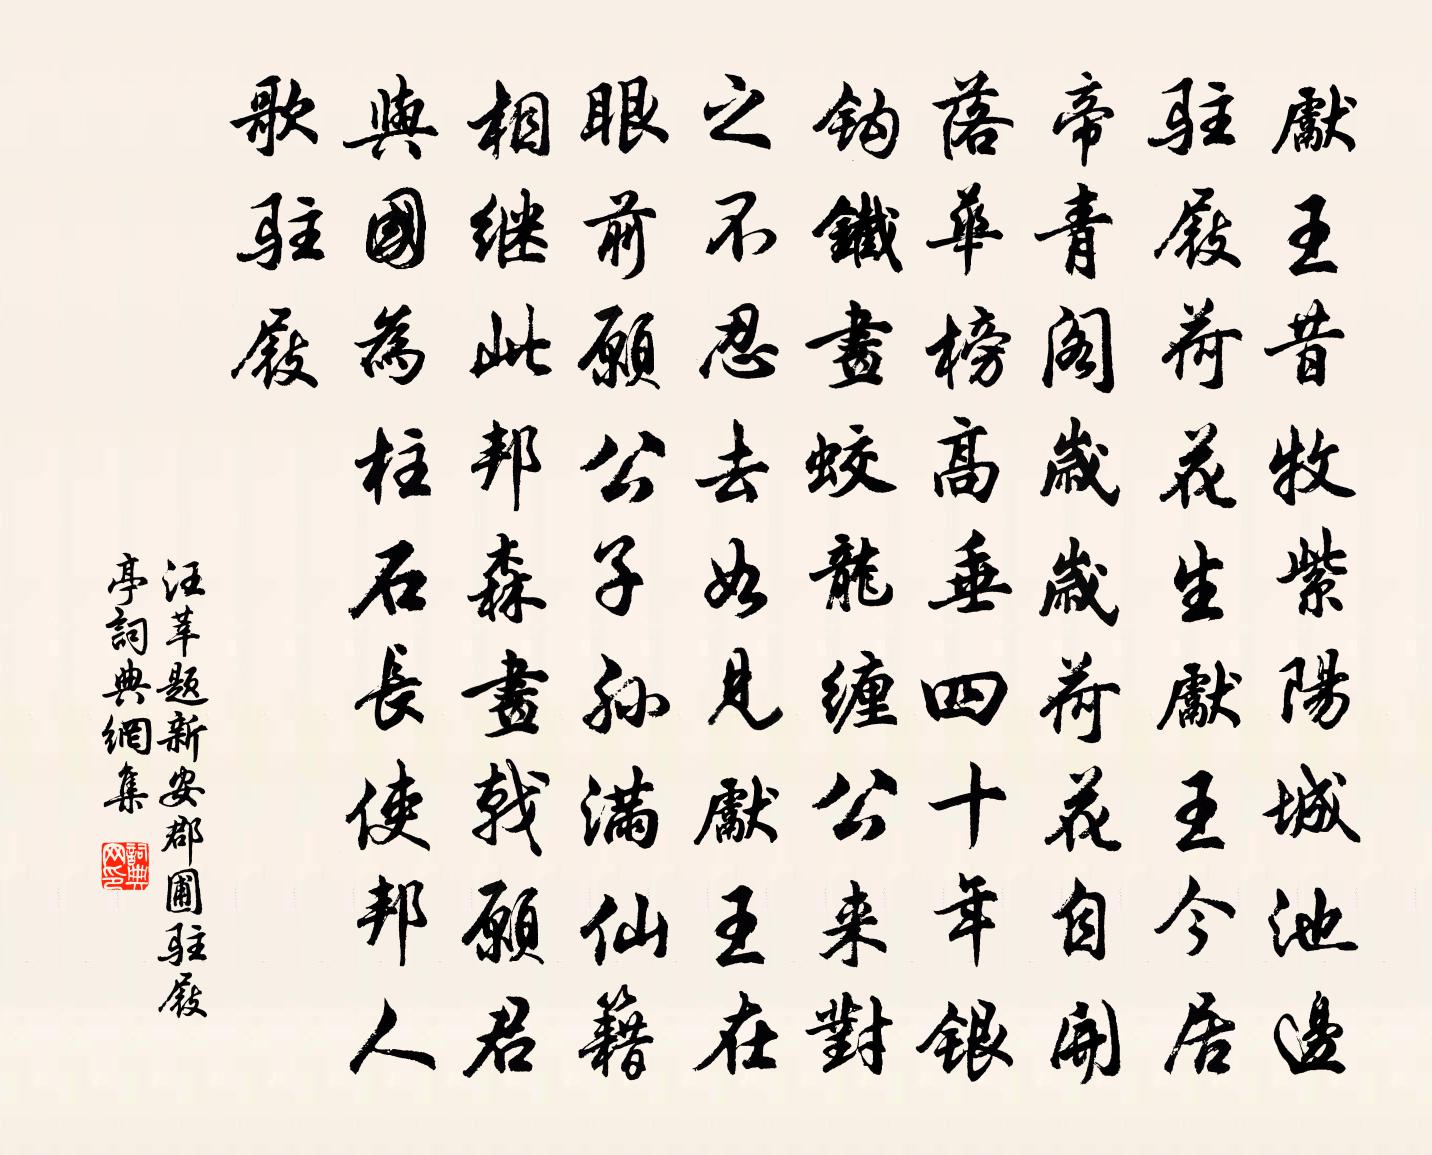 獻王昔牧紫陽城池邊
駐屐荷花生獻王今居
帝青閣歲歲荷花自開
落華榜高垂四十年銀
鈎鐵畫蛟龍纏公来對
之不忍去如見獻王在
眼前願公子孫滿仙籍
相継此邦森畫戟願君
與國為柱石長使邦人
歌駐屐
汪莘题新安郡圃駐屐
亭詞典網集
詞典网印